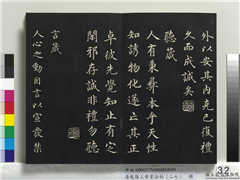 外以安其内克己復禮
久而誠矣
聽箴
人有秉彝本乎天性
知誘物化遂亡其正
卓彼先覺知止有定
閑邪存誠非禮勿聽
言箴
人心之動因言以宣發禁
32